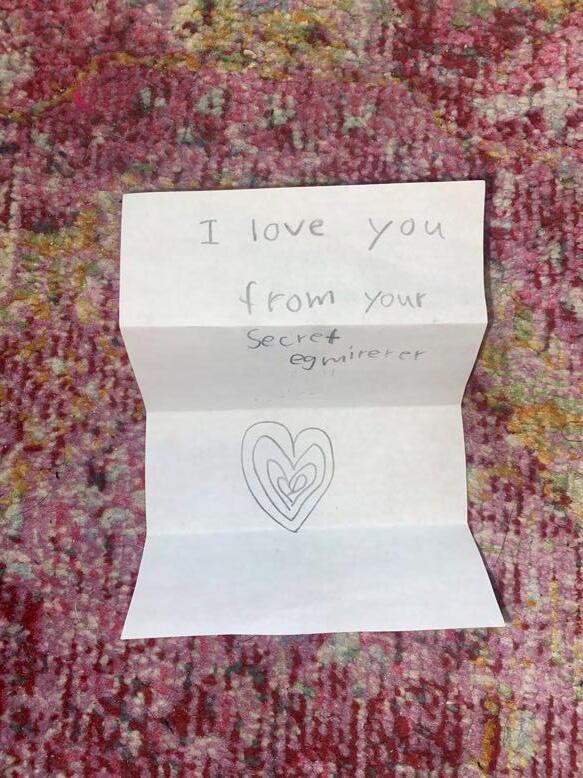 I love you
from your
Secret
egmirerer